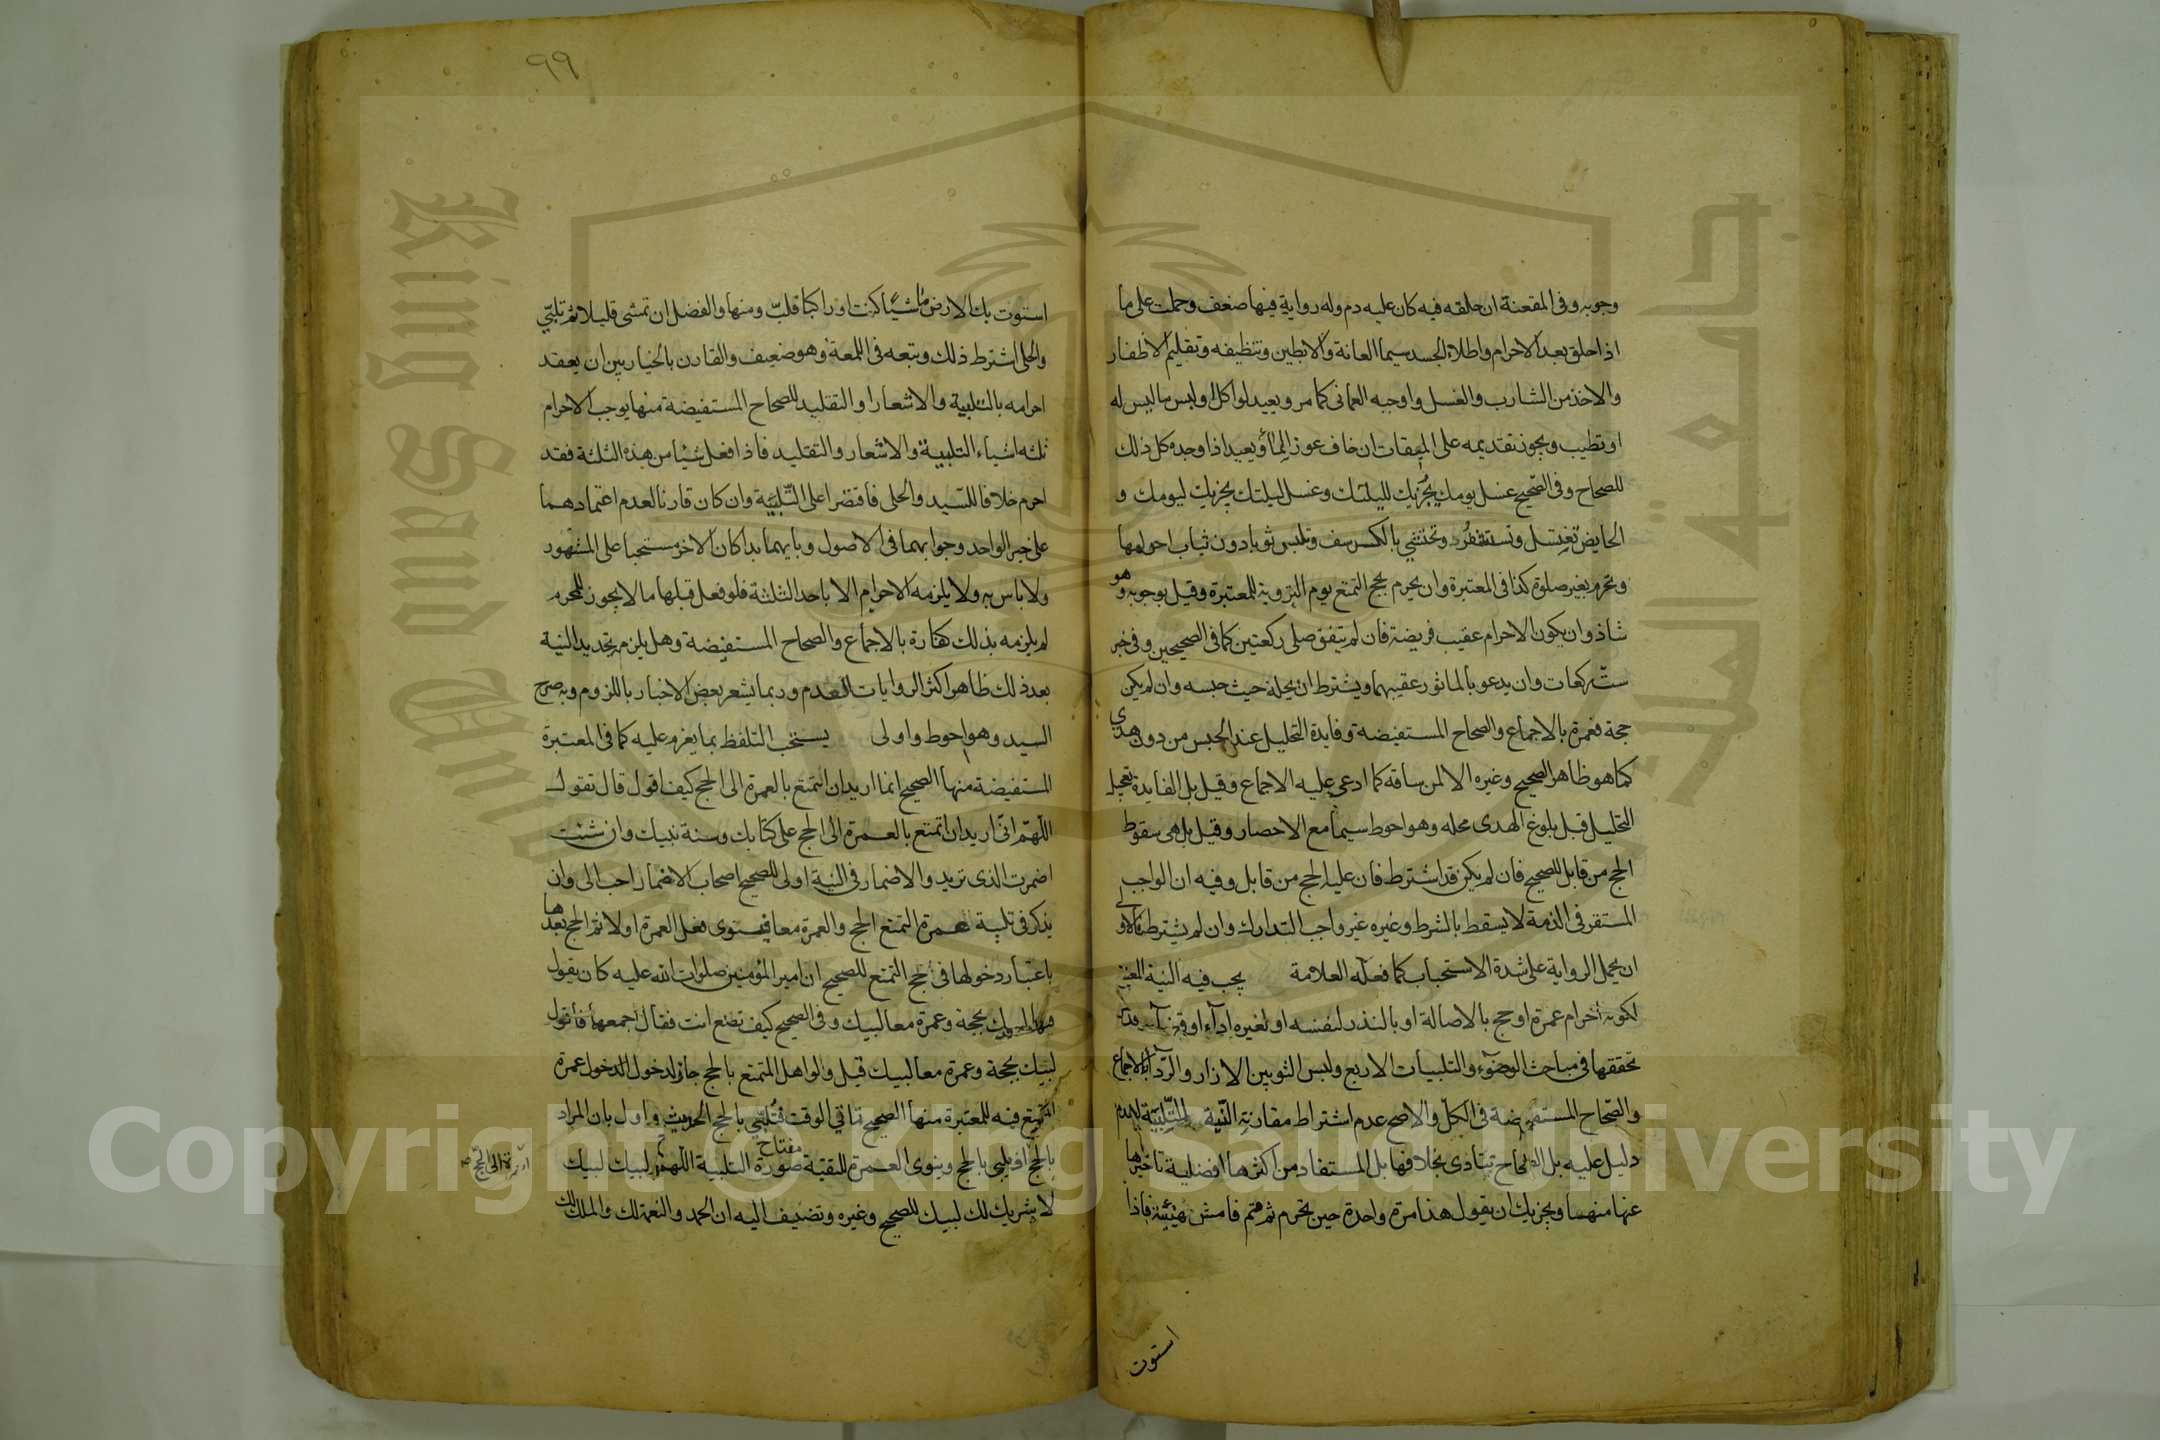 وجوبه وفى المقنعة ان حلقه فيه كان عليه دم وله رواية فيها ضعف وحملت على ما
اذا حلق بعد الاحرام واطلاء الجسد سيما العانة والابطين وتنظيفه وتقليم الاظفار
والاخذ من الشارب والغسل واوجبه العمانى كما مر ويعيد لو اكل او لبس ما ليس له
او تطيب ويجوز تقديمه على الميقات ان خاف عوز الماء ويعيد اذا وجده كل ذلك
للصحاح وفى الصحيح غسل يومك يجزيك لليلتك وغسل ليلتك يجزيك ليومك و
الحايض تغتسل وتستثفر وتحتشى بالكرسف وتلبس ثوبا دون ثياب احرامها
وتحرم بغير صلوة كذا فى المعتبرة وان يحرم بحج التمتع يوم التروية للمعتبرة وقيل بوجوبه وهو
شاذ وان يكون الاحرام عقيب فريضة فان لم يتفق صلى ركعتين كما فى الصحيحين وفى خبر
ست ركعات وان يدعو بالماثور عقيبهما ويشترط ان يحله حيث حبسه وان لم يكن
حجة فعمرة بالاجماع والصحاح المستفيضة وفايدة التحليل عند الحبس من دون هدى
كما هو ظاهر الصحيح وغيره الا لمن ساقه كما ادعى عليه الاجماع وقيل بل الفايدة تعجيل
التحليل قبل بلوغ الهدى محله وهو احوط سيما مع الاحصار وقيل بل هى سقوط
الحج من قابل للصحيح فان لم يكن قد اشترط فان عليه الحج من قابل وفيه ان الواجب
المستقر فى الذمة لا يسقط بالشرط وغيره غير واجب التدارك وان لم يشترط فالاولى
ان يحمل الرواية على شدة الاستحباب كما فعله العلامة يجب فيه النية المعينة
لكونه احرام عمرة او حج بالاصالة او بالنذر لنفسه او لغيره اداء او قضاء
تحققها فى مباحث الوضوء والتلبيات الاربع ولبس الثوبين الازار والرداء بالاجماع
والصحاح المستفيضة فى الكل والاصح عدم اشتراط مقارنة النية للتلبية لعدم
دليل عليه بل الصحاح تنادى بخلافها بل المستفاد من اكثرها افضلية تاخيرها
عنها منها ويجزيك ان يقول هذا مرة واحدة حين يحرم ثم قم فامش هنيئة فاذا
استوت
٩٩
استوت بك الارض ماشيا كنت او راكبا فلب ومنها والفضل ان تمشى قليلا ثم تلبى
والحلى اشترط ذلك وتبعه فى اللمعة وهو ضعيف والقارن بالخيار بين ان يعقد
احرامه بالتلبية والاشعار او التقليد للصحاح المستفيضة منها يوجب الاحرام
ثلثه اشياء التلبية والاشعار والتقليد فاذا فعل شيئا من هذه الثلثة فقد
احرم خلافا للسيد والحلى فاقتصرا على التلبية وان كان قارنا لعدم اعتمادهما
على خبر الواحد وجوابهما فى الاصول وبايهما بدا كان الاخر مستحبا على المشهور
ولا باس به ولا يلزمه الاحرام الا باحد الثلثة فلو فعل قبلها ما لا يجوز للمحرم
لم يلزمه بذلك كفارة بالاجماع والصحاح المستفيضة وهل يلزم تجديد النية
بعد ذلك ظاهر اكثر الروايات العدم وربما يشعر بعض الاخبار باللزوم وبه صرح
السيد وهو احوط واولى يستحب التلفظ بما يعزم عليه كما فى المعتبرة
المستفيضة منها الصحيح انما اريد ان اتمتع بالعمرة الى الحج كيف اقول قال تقول
اللهم انى اريد ان اتمتع بالعمرة الى الحج على كتابك وسنة نبيك وان شئت
اضمرت الذى تريد والاضمار فى النية اولى للصحيح اصحاب الاضمار احب الى وان
يذكر فى تلبية عمرة التمتع الحج والعمرة معا فينوى فعل العمرة اولا ثم الحج بعدها
باعتبار دخولها فى حج التمتع للصحيح ان امير المؤمنين صلوات الله عليه كان يقول
بحجة وعمرة معا لبيك وفى الصحيح كيف تصنع انت فقال اجمعها فاقول
لبيك بحجة وعمرة معا لبيك قيل ولو اهل المتمتع بالحج جاز لدخول عمرة
التمتع فيه للمعتبرة منها الصحيح تاتى الوقت فتلبى بالحج الحديث واول بان المراد
بالحج او يلبى بالحج وينوى العمرة للتقية مفتاح صورة التلبية اللهم لبيك لبيك
لا شريك لك لبيك للصحيح وغيره وتضيف اليه ان الحمد والنعمة لك والملك لك
King Saud University
جامعة الملك سعود
Copyright © King Saud University